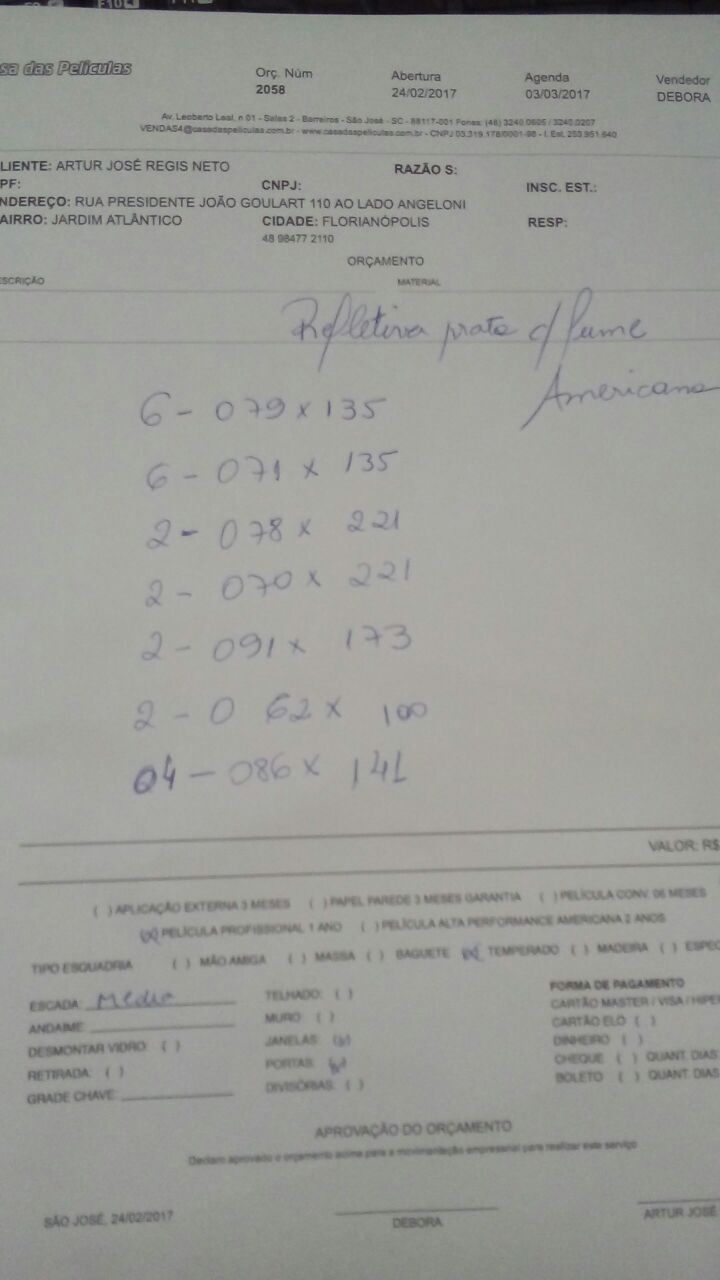 sa das Películas
Orç. Núm Abertura Agenda Vendedor
2058 24/02/2017 03/03/2017 DEBORA
Av. Leoberto Leal, n 01 - Salas 2 - Barreiros - São José - SC - 88117-001 Fones: (48) 3240.0605 / 3240.0207
VENDAS4@casadaspeliculas.com.br - www.casadaspeliculas.com.br - CNPJ 03.319.178/0001-98 - I. Est. 253.951.640
LIENTE: ARTUR JOSÉ REGIS NETO RAZÃO S:
PF: CNPJ: INSC. EST.:
NDEREÇO: RUA PRESIDENTE JOÃO GOULART 110 AO LADO ANGELONI
AIRRO: JARDIM ATLÂNTICO CIDADE: FLORIANÓPOLIS RESP:
48 98477 2110
ORÇAMENTO
ESCRIÇÃO MATERIAL
Refletiva prata c/ fume
Americana
6 - 079 x 135
6 - 071 x 135
2 - 078 x 221
2 - 070 x 221
2 - 091 x 173
2 - 0 62 x 100
04 - 086 x 141
VALOR: R$
( ) APLICAÇÃO EXTERNA 3 MESES ( ) PAPEL PAREDE 3 MESES GARANTIA ( ) PELÍCULA CONV. 06 MESES
(x) PELÍCULA PROFISSIONAL 1 ANO ( ) PELÍCULA ALTA PERFORMANCE AMERICANA 2 ANOS
TIPO ESQUADRIA ( ) MÃO AMIGA ( ) MASSA ( ) BAGUETE (x) TEMPERADO ( ) MADEIRA ( ) ESPEC
ESCADA: Medio TELHADO: ( ) FORMA DE PAGAMENTO
ANDAIME: MURO: ( ) CARTÃO MASTER / VISA / HIPER
DESMONTAR VIDRO: ( ) JANELAS: (x) CARTÃO ELO ( )
RETIRADA: ( ) PORTAS: (x) DINHEIRO ( )
GRADE CHAVE: DIVISÓRIAS: ( ) CHEQUE ( ) QUANT. DIAS
BOLETO ( ) QUANT. DIAS
APROVAÇÃO DO ORÇAMENTO
Declaro aprovado o orçamento acima para a movimentação empresarial para realizar este serviço
SÃO JOSÉ, 24/02/2017 DEBORA ARTUR JOSÉ